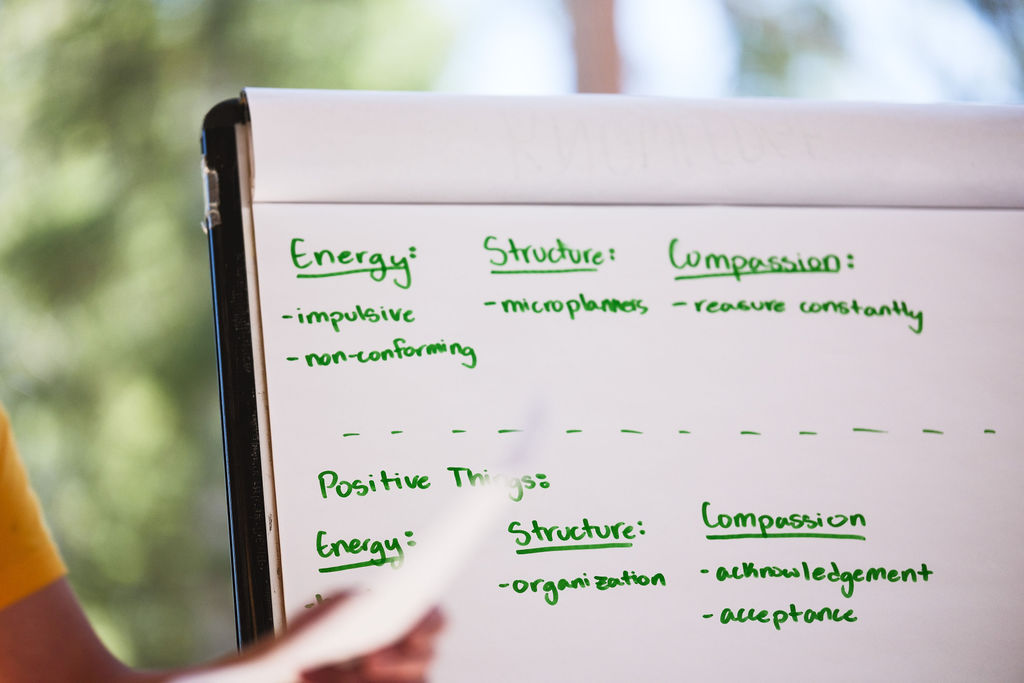 Energy: Structure: Compassion:
-impulsive -microplanners -reasure constantly
-non-conforming
Positive Things:
Energy: Structure: Compassion
-organization -acknowledgement
-acceptance